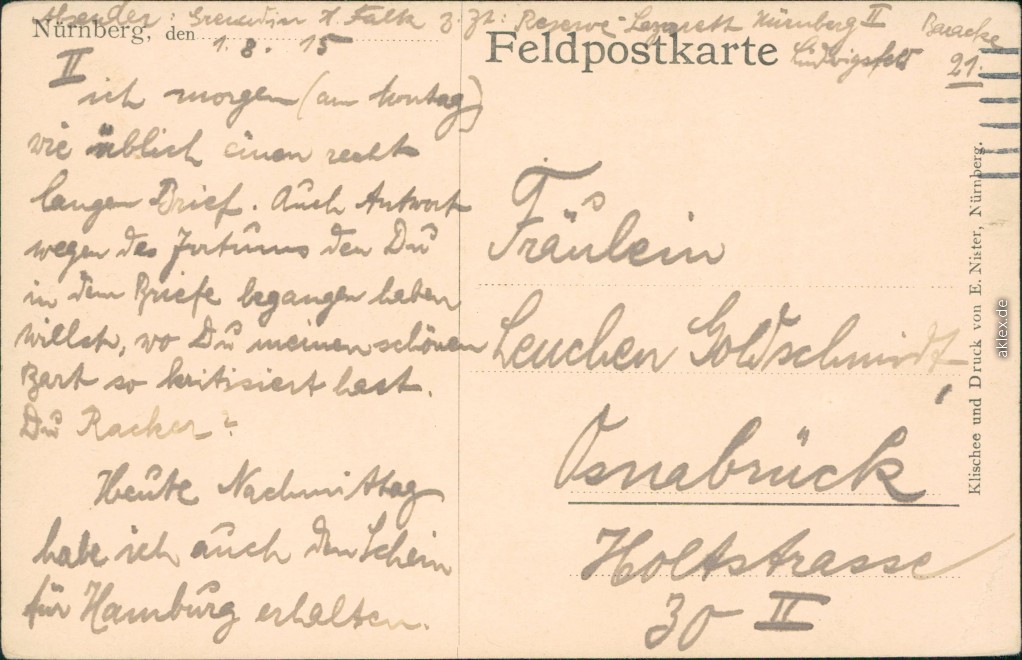 Absender: Grenadier H. Falk z. Zt. Reserve-Lazarett Nürnberg II Baracke
Ludwigsfeld 21.
Nürnberg, den 1. 8. 15
Feldpostkarte
II
ich morgen (am Montag)
wie üblich einen recht
langen Brief. Auch Antwort
wegen des Irrtums den Du
in dem Briefe begangen haben
willst, wo Du meinen schönen
Bart so kritisiert hast.
Du Racker?
Heute Nachmittag
habe ich auch den Schein
für Hamburg erhalten.
Fräulein
Lenchen Goldschmidt
Osnabrück
Holtstrasse
30 II
Klischee und Druck von E. Nister, Nürnberg.
aklex.de